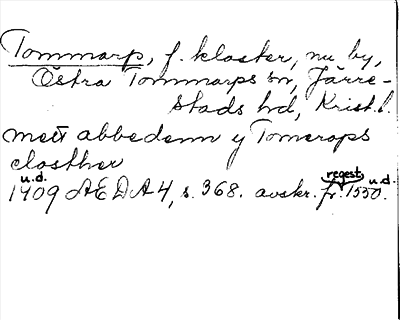 Tommarp, f. kloster, nu by,
Östra Tommarps sn, Järre-
stads hd, Krist. l.
mett abbedenn y Tomerops
closther
u.d.
1409 AEDA 4, s. 368. avskr. fr. regest 1550. u.d.